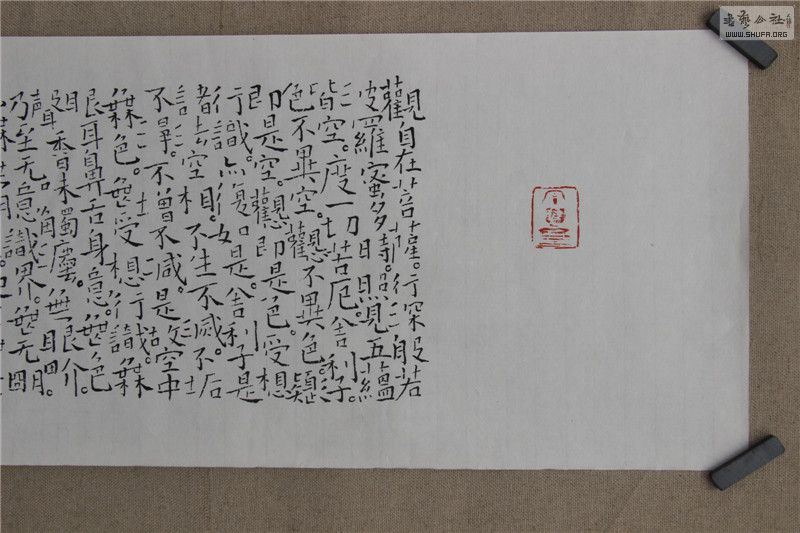 書藝公社
WWW.SHUFA.ORG
觀自在菩薩。行深般若
波羅蜜多時。照見五蘊
皆空。度一切苦厄舍利子。
色不異空。不異色。
即是空。即是色。受想
行識。亦復如是。舍利子是
諸法空相。不生不滅。不垢
不淨。不增不減。是故空中
無色。無受想行識。無
眼耳鼻舌身意。無色
聲香味觸。無眼界。
乃至无意識界。無无明。